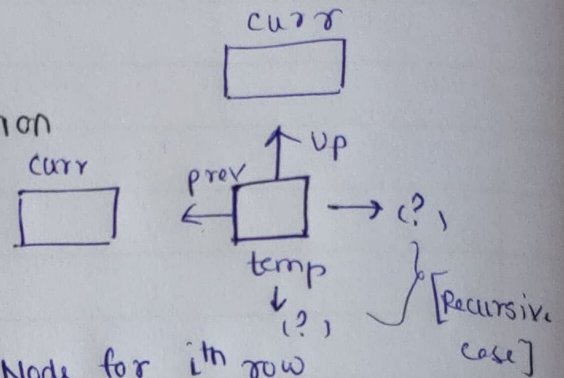 curr
ion
up
curr
prev
(?)
temp
(?)
[Recursive
case]
Node for ith row